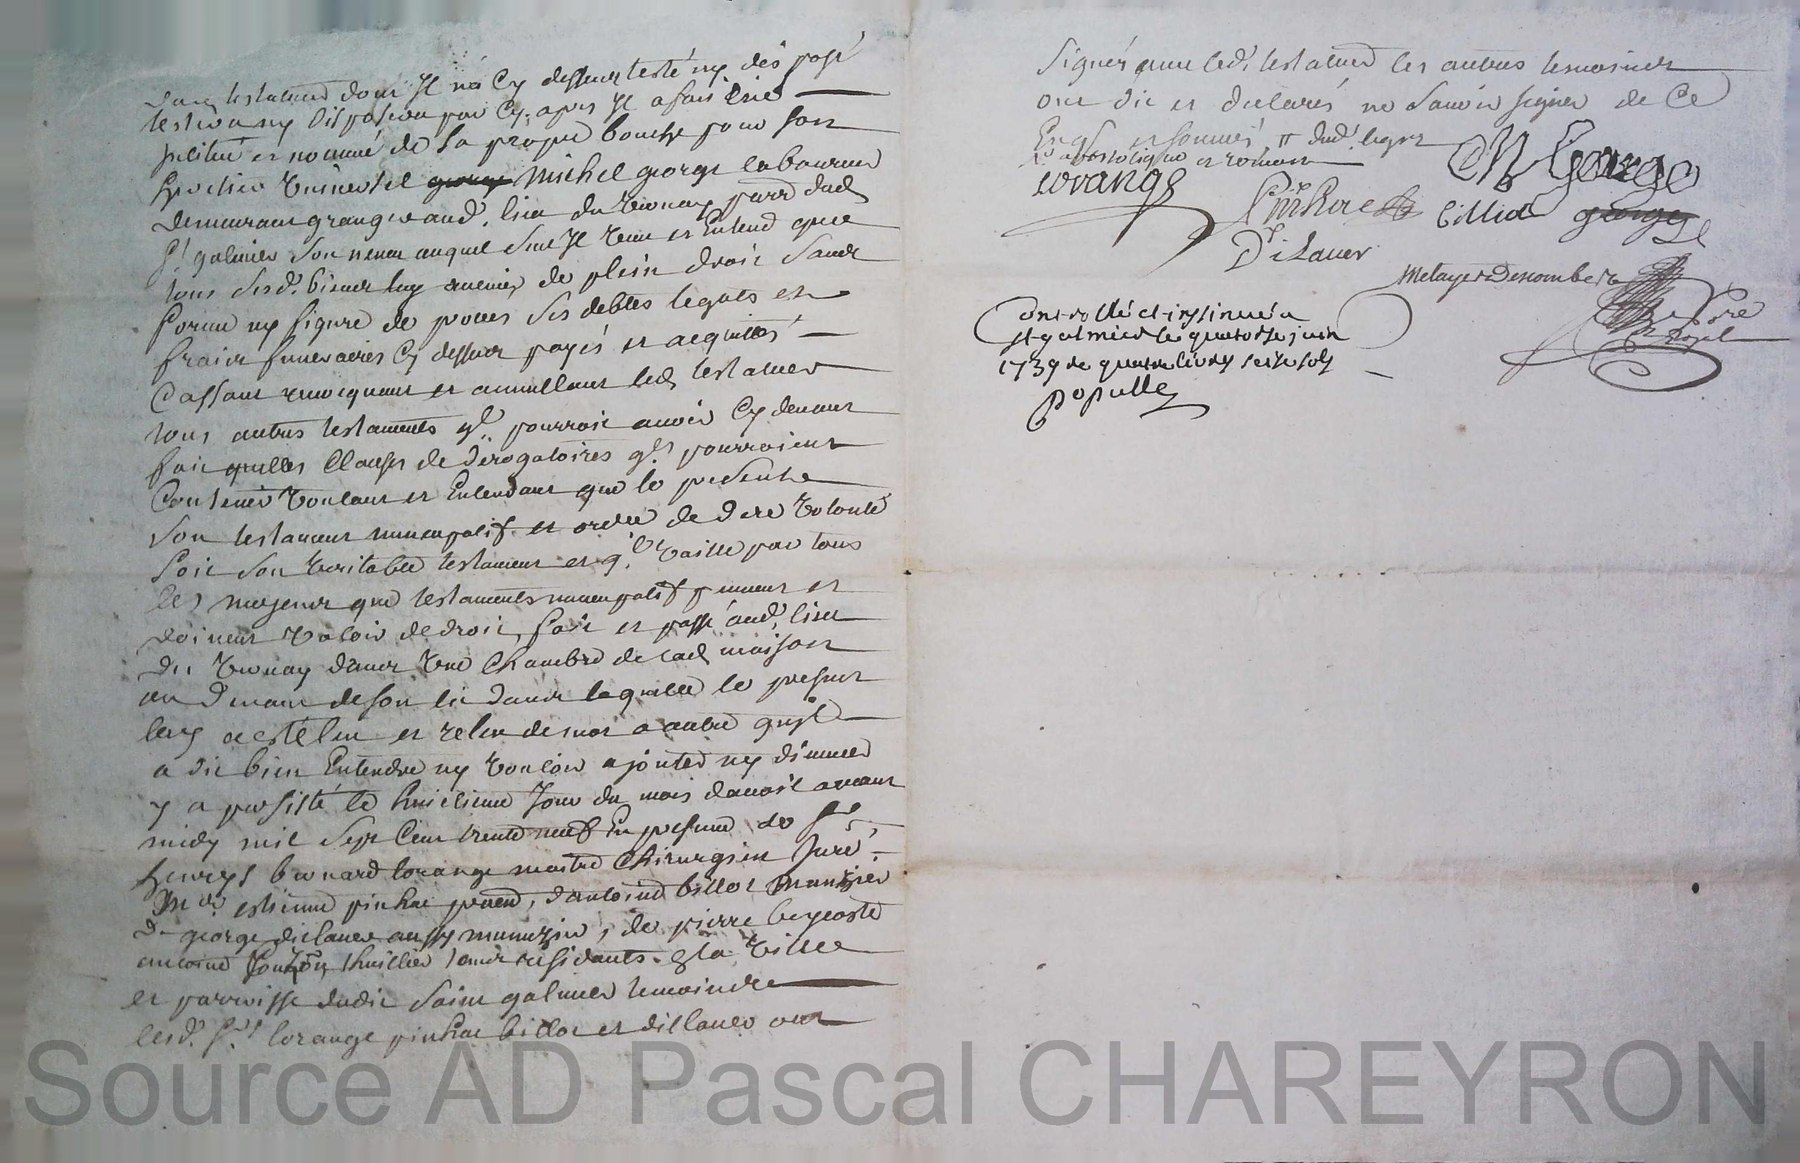 dud. testateur dont Il n'a Cy dessus testé ny dis posé
testera ny disposera par Cy apres Il a fait créé
Institué et nommé de sa propre bouche pour son
heritier Universel george Michel george laboureur
demeurant granger aud. lieu du Vernay parr. dud.
St galmier son neveu auquel Il Veut et Entend que
tous sesd. biens luy avenir de plein droit sans
forme ny figure de proces ses debtes legats et
fraix funeraires Cy dessus payés et acquittés
Cassant revoquant et annullant led. testateur
tous autres testaments qu'il pourroit avoir Cy devant
fait quelles Clauses de derogatoires qu'ils pourroient
Contenir Voulant et Entendant que le present
son testament nuncupatif et ordre de dere Volonté
soit son Veritable testament et qu'il Vaille par tous
les moyens que testaments nuncupatif peuvent et
doivent Valoir de droit, fait et passé aud. lieu
du Vernay dans Une Chambre de lad. maison
au devant de son lit dans laquelle le present
leu et releu de mot a autre qu'il
a dit bien Entendre ny Vouloir ajouter ny diminuer
y a persisté le huitieme Jour du mois d'avril avant
midy mil Sept Cent trente neuf En presence de Sr
henrys bernard lorange maitre Chirurgien Juré
Me estienne pinhac, d'antoine billot
de george dielaner aussy, de pierre
antoine thuillier tous residants En la Ville
et parroisse dudit Saint galmier temoins
lesd. Srs lorange pinhac billot et dillaner ont
Signés avec led. testateur les autres temoins
ont dit et declarés ne Savoir signer de Ce
Enquis et sommés
apostolique et romaine
lorange
M George
Pinhac
Billot george
Dilaner
Metayer Denombre
Nore
Royal
Controllé et insinué a
st galmier le quatorze juin
1739 re quatre livres seize sols
Populle
Source AD Pascal CHAREYRON